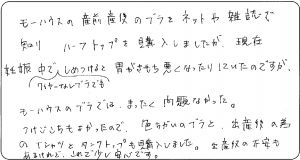 モーハウスの産前産後のブラをネットや雑誌で
知り ハーフトップを購入しましたが、現在
妊娠中で、しめつけると胃がきもち悪くなったりしていたのですが、
ワイヤーなしブラでも
モーハウスのブラでは、まったく問題なかった。
つけごこちもよかったので、色ちがいのブラと、出産後の為
のTシャツとタンクトップも購入しました。出産後の不安も
あるけれど、これで少し安心です。